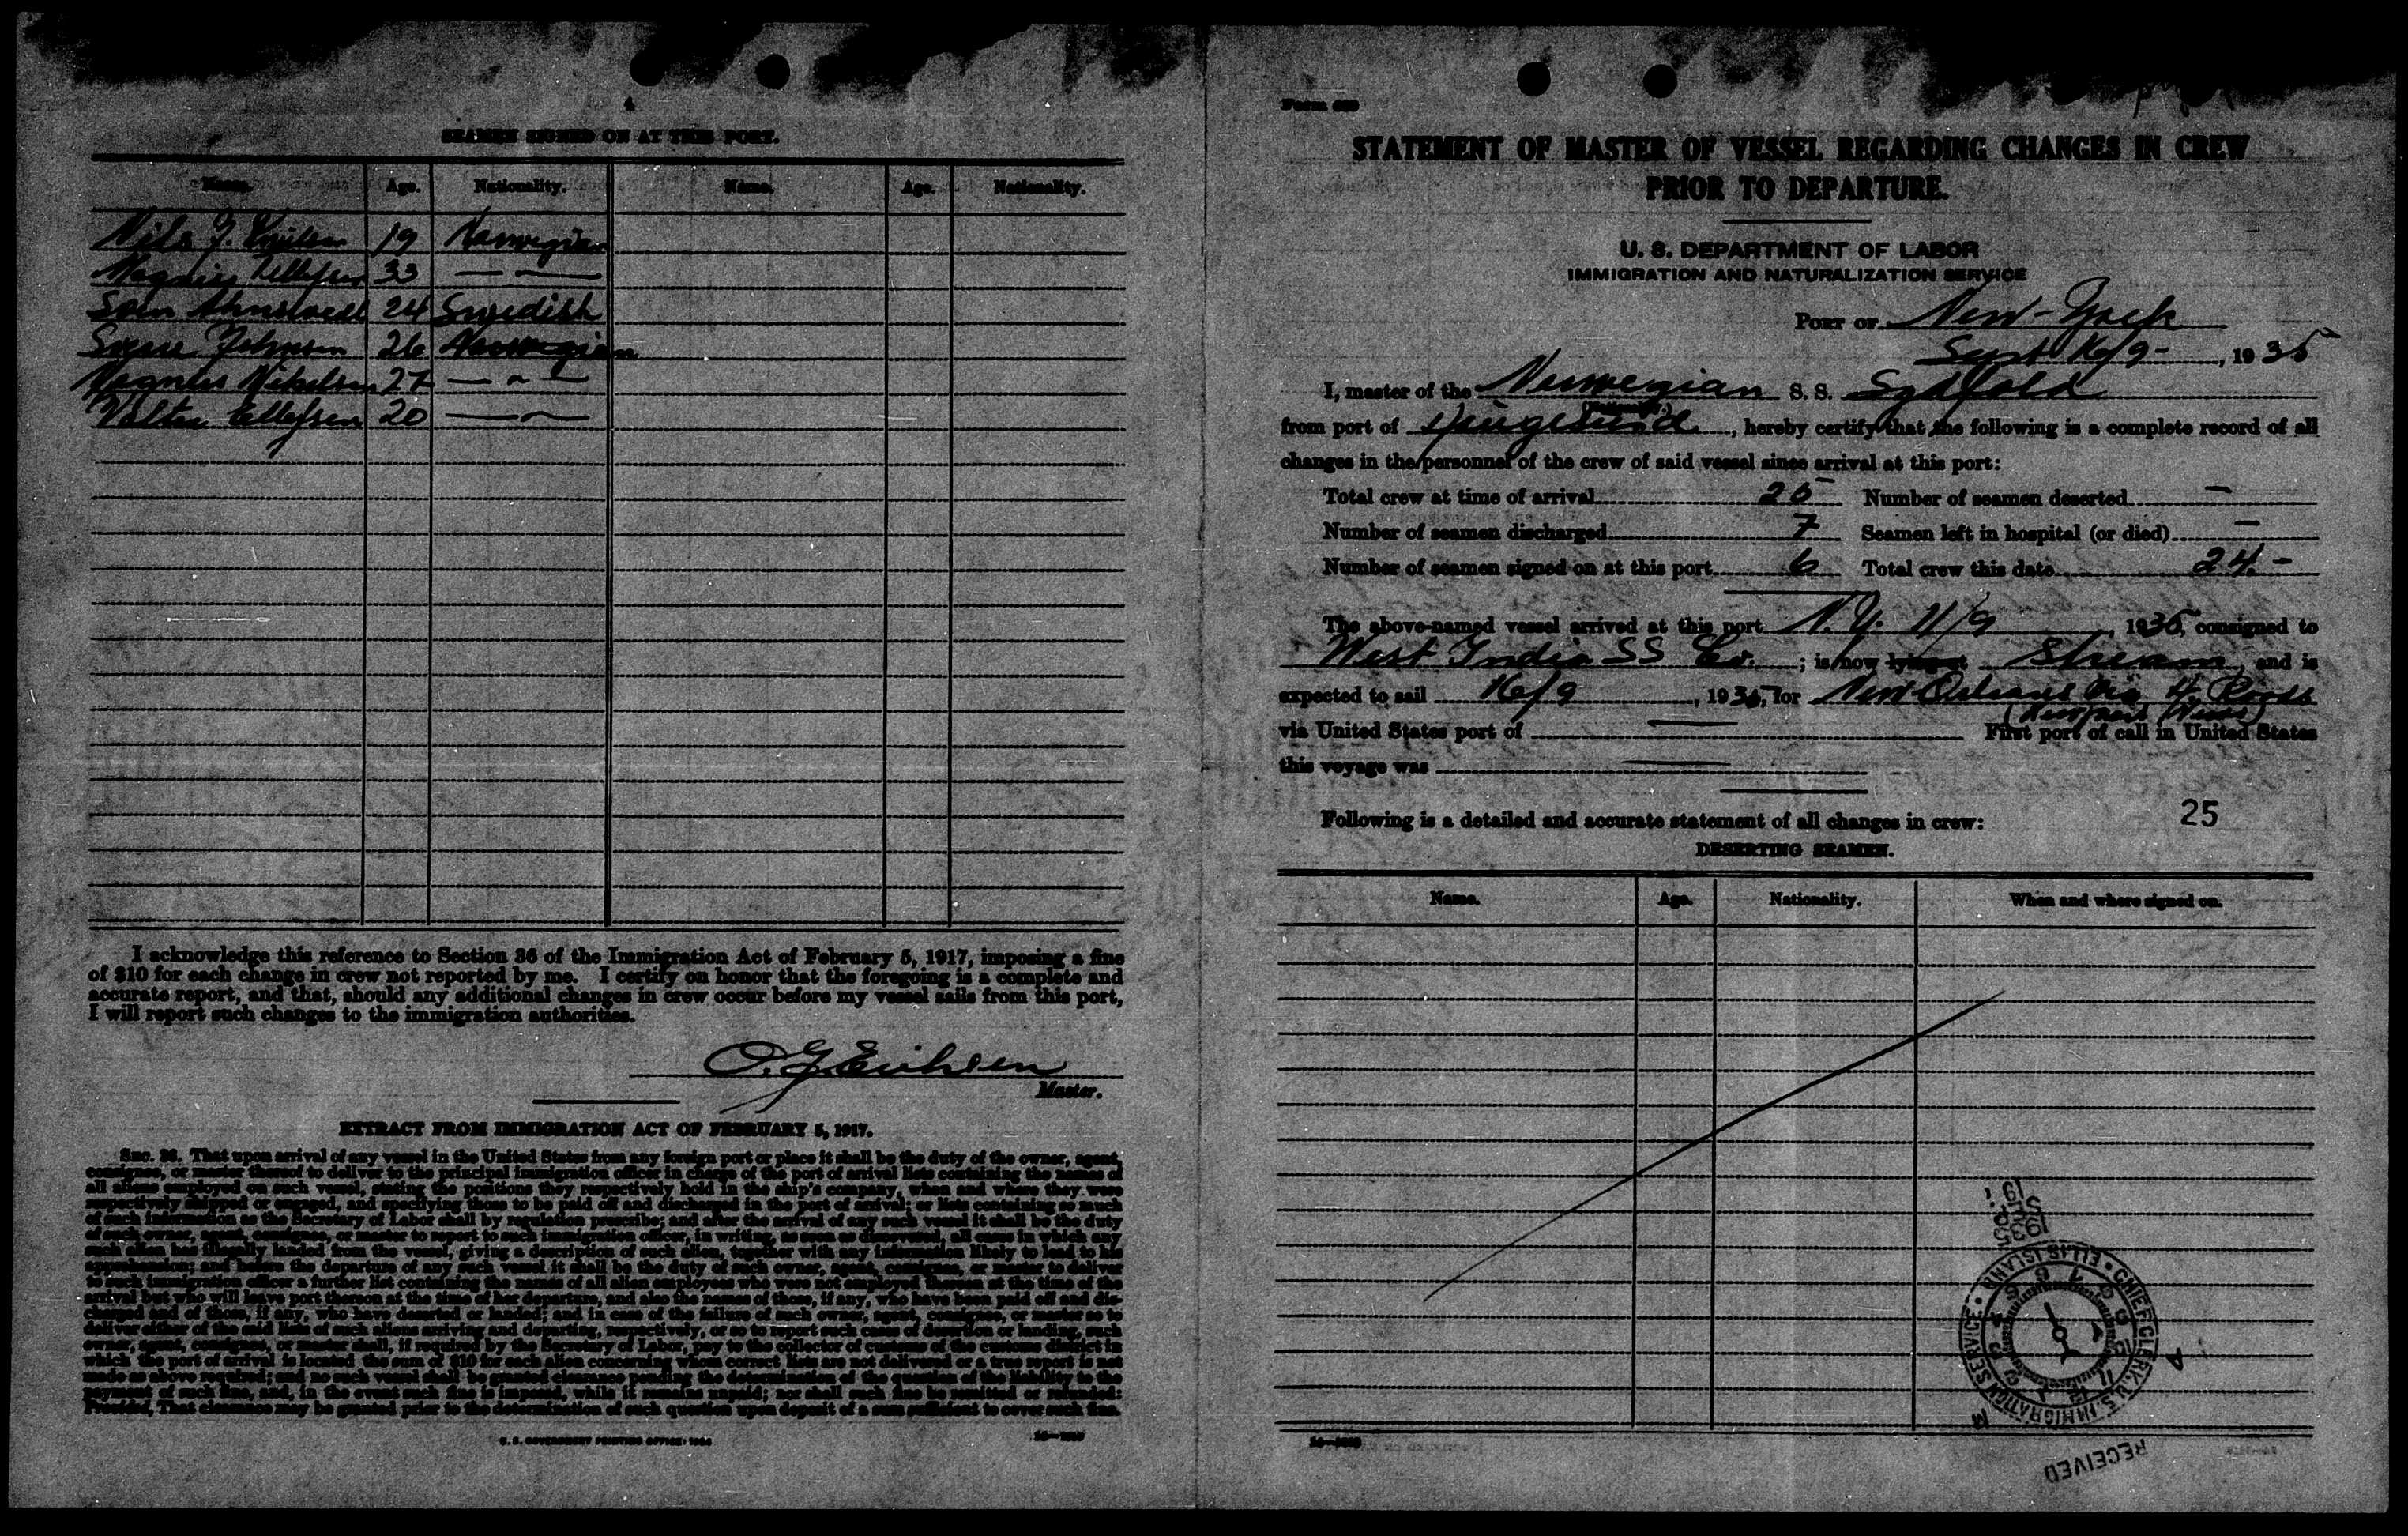 4
SEAMEN SIGNED ON AT THIS PORT.
Name. Age. Nationality. Name. Age. Nationality.
Nils J. 19 Norwegian
Magnus Ellefsen 33 — —
24 Swedish
Johnsen 26 Norwegian
Magnus Mikelsen 27 — " —
Ellefsen 20 — " —
I acknowledge this reference to Section 36 of the Immigration Act of February 5, 1917, imposing a fine
of $10 for each change in crew not reported by me. I certify on honor that the foregoing is a complete and
accurate report, and that, should any additional changes in crew occur before my vessel sails from this port,
I will report such changes to the immigration authorities.
Master.
EXTRACT FROM IMMIGRATION ACT OF FEBRUARY 5, 1917.
SEC. 36. That upon arrival of any vessel in the United States from any foreign port or place it shall be the duty of the owner, agent,
consignee, or master thereof to deliver to the principal immigration officer in charge of the port of arrival lists containing the names of
all aliens employed on such vessel, stating the positions they respectively hold in the ship's company, when and where they were
respectively shipped or engaged, and specifying those to be paid off and discharged in the port of arrival; or lists containing so much
of such information as the Secretary of Labor shall by regulation prescribe; and after the arrival of any such vessel it shall be the duty
of such owner, agent, consignee, or master to report to such immigration officer, in writing, as soon as discovered, all cases in which any
such alien has illegally landed from the vessel, giving a description of such alien, together with any information likely to lead to his
apprehension; and before the departure of any such vessel it shall be the duty of such owner, agent, consignee, or master to deliver
to such immigration officer a further list containing the names of all alien employees who were not employed thereon at the time of the
arrival but who will leave port thereon at the time of her departure, and also the names of those, if any, who have been paid off and dis-
charged and of those, if any, who have deserted or landed; and in case of the failure of such owner, agent, consignee, or master so to
deliver either of the said lists of such aliens arriving and departing, respectively, or so to report such cases of desertion or landing, such
owner, agent, consignee, or master shall, if required by the Secretary of Labor, pay to the collector of customs of the customs district in
which the port of arrival is located the sum of $10 for each alien concerning whom correct lists are not delivered or a true report is not
made as above required; and no such vessel shall be granted clearance pending the determination of the question of the liability to the
payment of such fine, and, in the event such fine is imposed, while it remains unpaid; nor shall such fine be remitted or refunded:
Provided, That clearance may be granted prior to the determination of such question upon deposit of a sum sufficient to cover such fine.
U. S. GOVERNMENT PRINTING OFFICE:
Form
STATEMENT OF MASTER OF VESSEL REGARDING CHANGES IN CREW
PRIOR TO DEPARTURE.
U. S. DEPARTMENT OF LABOR
IMMIGRATION AND NATURALIZATION SERVICE
PORT OF New-York
Sept 16/9 -, 1935
I, master of the Norwegian S. S. Sydfold
from port of , hereby certify that the following is a complete record of all
changes in the personnel of the crew of said vessel since arrival at this port:
Total crew at time of arrival 25 Number of seamen deserted —
Number of seamen discharged 7 Seamen left in hospital (or died) —
Number of seamen signed on at this port 6 Total crew this date 24.-
The above-named vessel arrived at this port N.Y. 11/9, 1935, consigned to
West India SS Co.; is now lying at Stream, and is
expected to sail 16/9, 1935, for New Orleans via H. Roads
(Newport News)
via United States port of — First port of call in United States
this voyage was —
Following is a detailed and accurate statement of all changes in crew: 25
DESERTING SEAMEN.
Name. Age. Nationality. When and where signed on.
1935
SEP
19
CHIEF CLERK, U.S. IMMIGRATION SERVICE • ELLIS ISLAND •
1 2 3 4 5 6 7 8 9 10 11 12
A M
RECEIVED